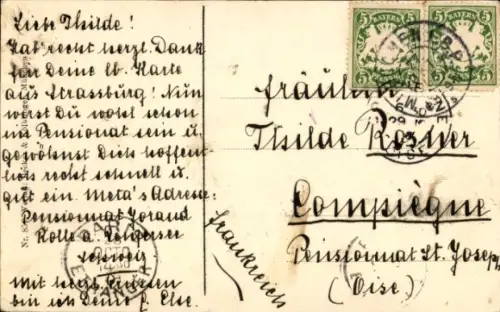 Liebe Thilde!
Hab recht herzl. Dank
für Deine lb. Karte
aus Strassburg! Nun
wirst Du wohl schon
im Pensionat sein u.
gewöhnst Dich hoffent-
lich recht schnell u.
gut ein Meta's Adresse:
Pensionnat Jorand
Rolle a.
Schweiz
Mit herzl. Grüssen
bin ich Deine Else.
BAYERN
5
BAYERN
5
Fräulein
Thilde
Compiègne
Pensionnat St. Joseph
(Oise)
Frankreich
PARIS
ETRANGER